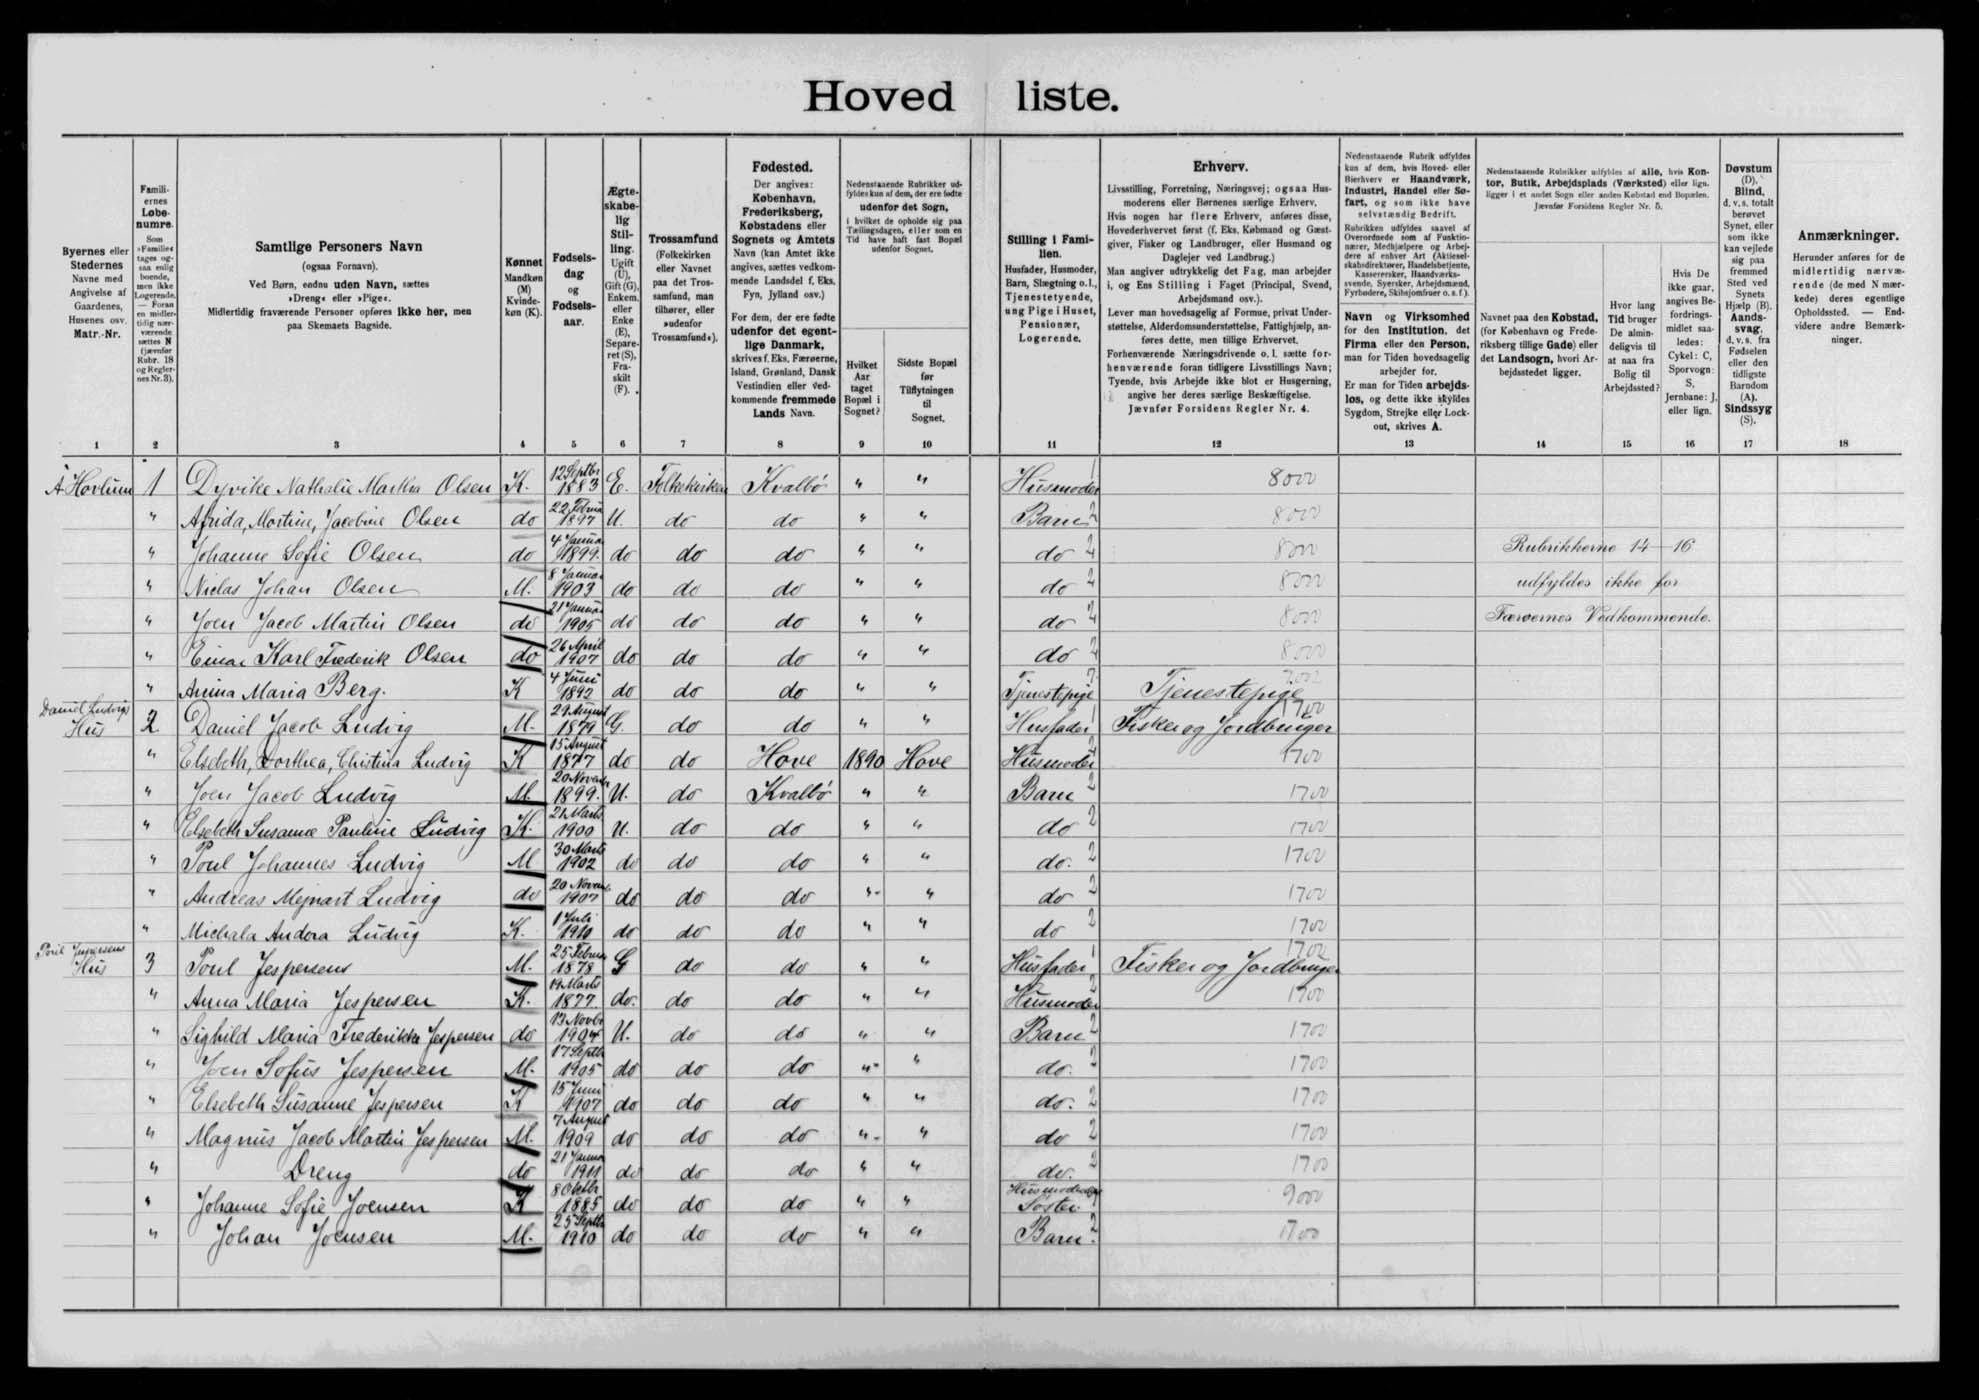 Hoved liste.
Byernes eller
Stedernes
Navne med
Angivelse af
Gaardenes,
Husenes osv.
Matr.-Nr.
Famili-
ernes
Løbe-
numre.
Som
»Familie«
tages og-
saa enlig
boende,
men ikke
Logerende.
— Foran
en midler-
tidig nær-
værende
sættes N
(jævnfør
Rubr. 18
og Regler-
nes Nr. 3).
Samtlige Personers Navn
(ogsaa Fornavn).
Ved Børn, endnu uden Navn, sættes
»Dreng« eller »Pige«.
Midlertidig fraværende Personer opføres ikke her, men
paa Skemaets Bagside.
Kønnet
Mandkøn
(M)
Kvinde-
køn (K).
Fødsels-
dag
og
Fødsels-
aar.
Ægte-
skabe-
lig
Stil-
ling.
Ugift
(U),
Gift (G),
Enkem.
eller
Enke
(E),
Separe-
ret (S),
Fra-
skilt
(F).
Trossamfund
(Folkekirken
eller Navnet
paa det Tros-
samfund, man
tilhører, eller
»udenfor
Trossamfund«).
Fødested.
Der angives:
København,
Frederiksberg,
Købstadens eller
Sognets og Amtets
Navn (kan Amtet ikke
angives, sættes vedkom-
mende Landsdel f. Eks.
Fyn, Jylland osv.)
For dem, der ere fødte
udenfor det egent-
lige Danmark,
skrives f. Eks. Færøerne,
Island, Grønland, Dansk
Vestindien eller ved-
kommende fremmede
Lands Navn.
Nedenstaaende Rubrikker ud-
fyldes kun af dem, der ere fødte
udenfor det Sogn,
i hvilket de opholde sig paa
Tællingsdagen, eller som en
Tid have haft fast Bopæl
udenfor Sognet.
Hvilket
Aar
taget
Bopæl i
Sognet?
Sidste Bopæl
før
Tilflytningen
til
Sognet.
Stilling i Fami-
lien.
Husfader, Husmoder,
Barn, Slægtning o.l.,
Tjenestetyende,
ung Pige i Huset,
Pensionær,
Logerende.
Erhverv.
Livsstilling, Forretning, Næringsvej; ogsaa Hus-
moderens eller Børnenes særlige Erhverv.
Hvis nogen har flere Erhverv, anføres disse,
Hovederhvervet først (f. Eks. Købmand og Gæst-
giver, Fisker og Landbruger, eller Husmand og
Daglejer ved Landbrug.)
Man angiver udtrykkelig det Fag, man arbejder
i, og Ens Stilling i Faget (Principal, Svend,
Arbejdsmand osv.).
Lever man hovedsagelig af Formue, privat Under-
støttelse, Alderdomsunderstøttelse, Fattighjælp, an-
føres dette, men tillige Erhvervet.
Forhenværende Næringsdrivende o. l. sætte for-
henværende foran tidligere Livsstillings Navn;
Tyende, hvis Arbejde ikke blot er Husgerning,
angive her deres særlige Beskæftigelse.
Jævnfør Forsidens Regler Nr. 4.
Nedenstaaende Rubrik udfyldes
kun af dem, hvis Hoved- eller
Bierhverv er Haandværk,
Industri, Handel eller Sø-
fart, og som ikke have
selvstændig Bedrift.
Rubrikken udfyldes saavel af
Overordnede som af Funktio-
nærer, Medhjælpere og Arbej-
dere af enhver Art (Aktiesel-
skabsdirektører, Handelsbetjente,
Kasserersker, Haandværks-
svende, Syersker, Arbejdsmænd,
Fyrbødere, Skibsjomfruer o. s. f.).
Navn og Virksomhed
for den Institution, det
Firma eller den Person,
man for Tiden hovedsagelig
arbejder for.
Er man for Tiden arbejds-
løs, og dette ikke skyldes
Sygdom, Strejke eller Lock-
out, skrives A.
Nedenstaaende Rubrikker udfyldes af alle, hvis Kon-
tor, Butik, Arbejdsplads (Værksted) eller lign.
ligger i et andet Sogn eller anden Købstad end Bopælen.
Jævnfør Forsidens Regler Nr. 5.
Navnet paa den Købstad,
(for København og Frede-
riksberg tillige Gade) eller
det Landsogn, hvori Ar-
bejdsstedet ligger.
Hvor lang
Tid bruger
De almin-
deligvis til
at naa fra
Bolig til
Arbejdssted?
Hvis De
ikke gaar,
angives Be-
fordrings-
midlet saa-
ledes:
Cykel: C,
Sporvogn:
S,
Jernbane: J,
eller lign.
Døvstum
(D).
Blind,
d. v. s. totalt
berøvet
Synet, eller
som ikke
kan vejlede
sig paa
fremmed
Sted ved
Synets
Hjælp (B).
Aands-
svag,
d. v. s. fra
Fødselen
eller den
tidligste
Barndom
(A).
Sindssyg
(S).
Anmærkninger.
Herunder anføres for de
midlertidig nærvæ-
rende (de med N mær-
kede) deres egentlige
Opholdssted. — End-
videre andre Bemærk-
ninger.
1 2 3 4 5 6 7 8 9 10 11 12 13 14 15 16 17 18
Á Hovlum 1 Dyvike Nathalie Martha Olsen K. 12 Septbr 1883 E. Folkekirken Kvalbö " " Husmoder 1 8000
" Afrida, Martine, Jacobine Olsen do 22 Februar 1897 U. do do " " Barn 2 8000
" Johanne Sofie Olsen do 4 Januar 1899. do do do " " do 2 8000 Rubrikkerne 14-16
" Niclas Johan Olsen M. 8 Januar 1903 do do do " " do 2 8000 udfyldes ikke for
" Joen Jacob Martin Olsen do 21 Januar 1905 do do do " " do 2 8000 Færøernes Vedkommende.
" Einar Karl Frederik Olsen do 26 April 1907 do do do " " do 2 8000
" Anina Maria Berg. K 4 Juni 1892 do do do " " Tjenestepige 7 Tjenestepige
Daniel Ludvigs Hus 2 Daniel Jacob Ludvig M. 29 August 1879 G. do do " " Husfader 1 Fisker og Jordbruger 1700
" Elsebeth, Dorthea, Christina Ludvig K 15 August 1877 do do Hove 1890 Hove Husmoder 2 1700
" Joen Jacob Ludvig M. 20 Novembr 1899. U. do Kvalbö " " Barn 2 1700
" Elsebeth Susanne Pauline Ludvig K. 21 Marts 1900 U. do do " " do 2 1700
" Poul Johannes Ludvig M. 30 Marts 1902 do do do " " do. 2 1700
" Andreas Mejnart Ludvig do 20 Novem. 1907 do do do " " do 2 1700
" Michala Andora Ludvig K. 1 Juli 1910 do do do " " do 2 1700
Poul Jespersens Hus 3 Poul Jespersens M. 25 Februar 1878 G do do " " Husfader 1 Fisker og Jordbruger 1700
" Anna Maria Jespersen K. 19 Marts 1877. do. do do " " Husmoder 2 1700
" Sighild Maria Frederikka Jespersen do 13 Novbr 1904 U. do do " " Barn 2 1700
" Joen Sofus Jespersen M. 17 Septbr 1905 do do do " " do. 2 1700
" Elsebeth Susanne Jespersen K 15 Juni 1907 do do do " " do. 2 1700
" Magnus Jacob Martin Jespersen M. 7 August 1909 do do do " " do 2 1700
" Dreng do 21 Januar 1911 do do do " " do. 2 1700
" Johanne Sofie Joensen K 8 Oktbr 1885 do do do " " Husmoderens Söster 9000
" Johan Joensen M. 25 Septbr 1910 do do do " " Barn 2 1700